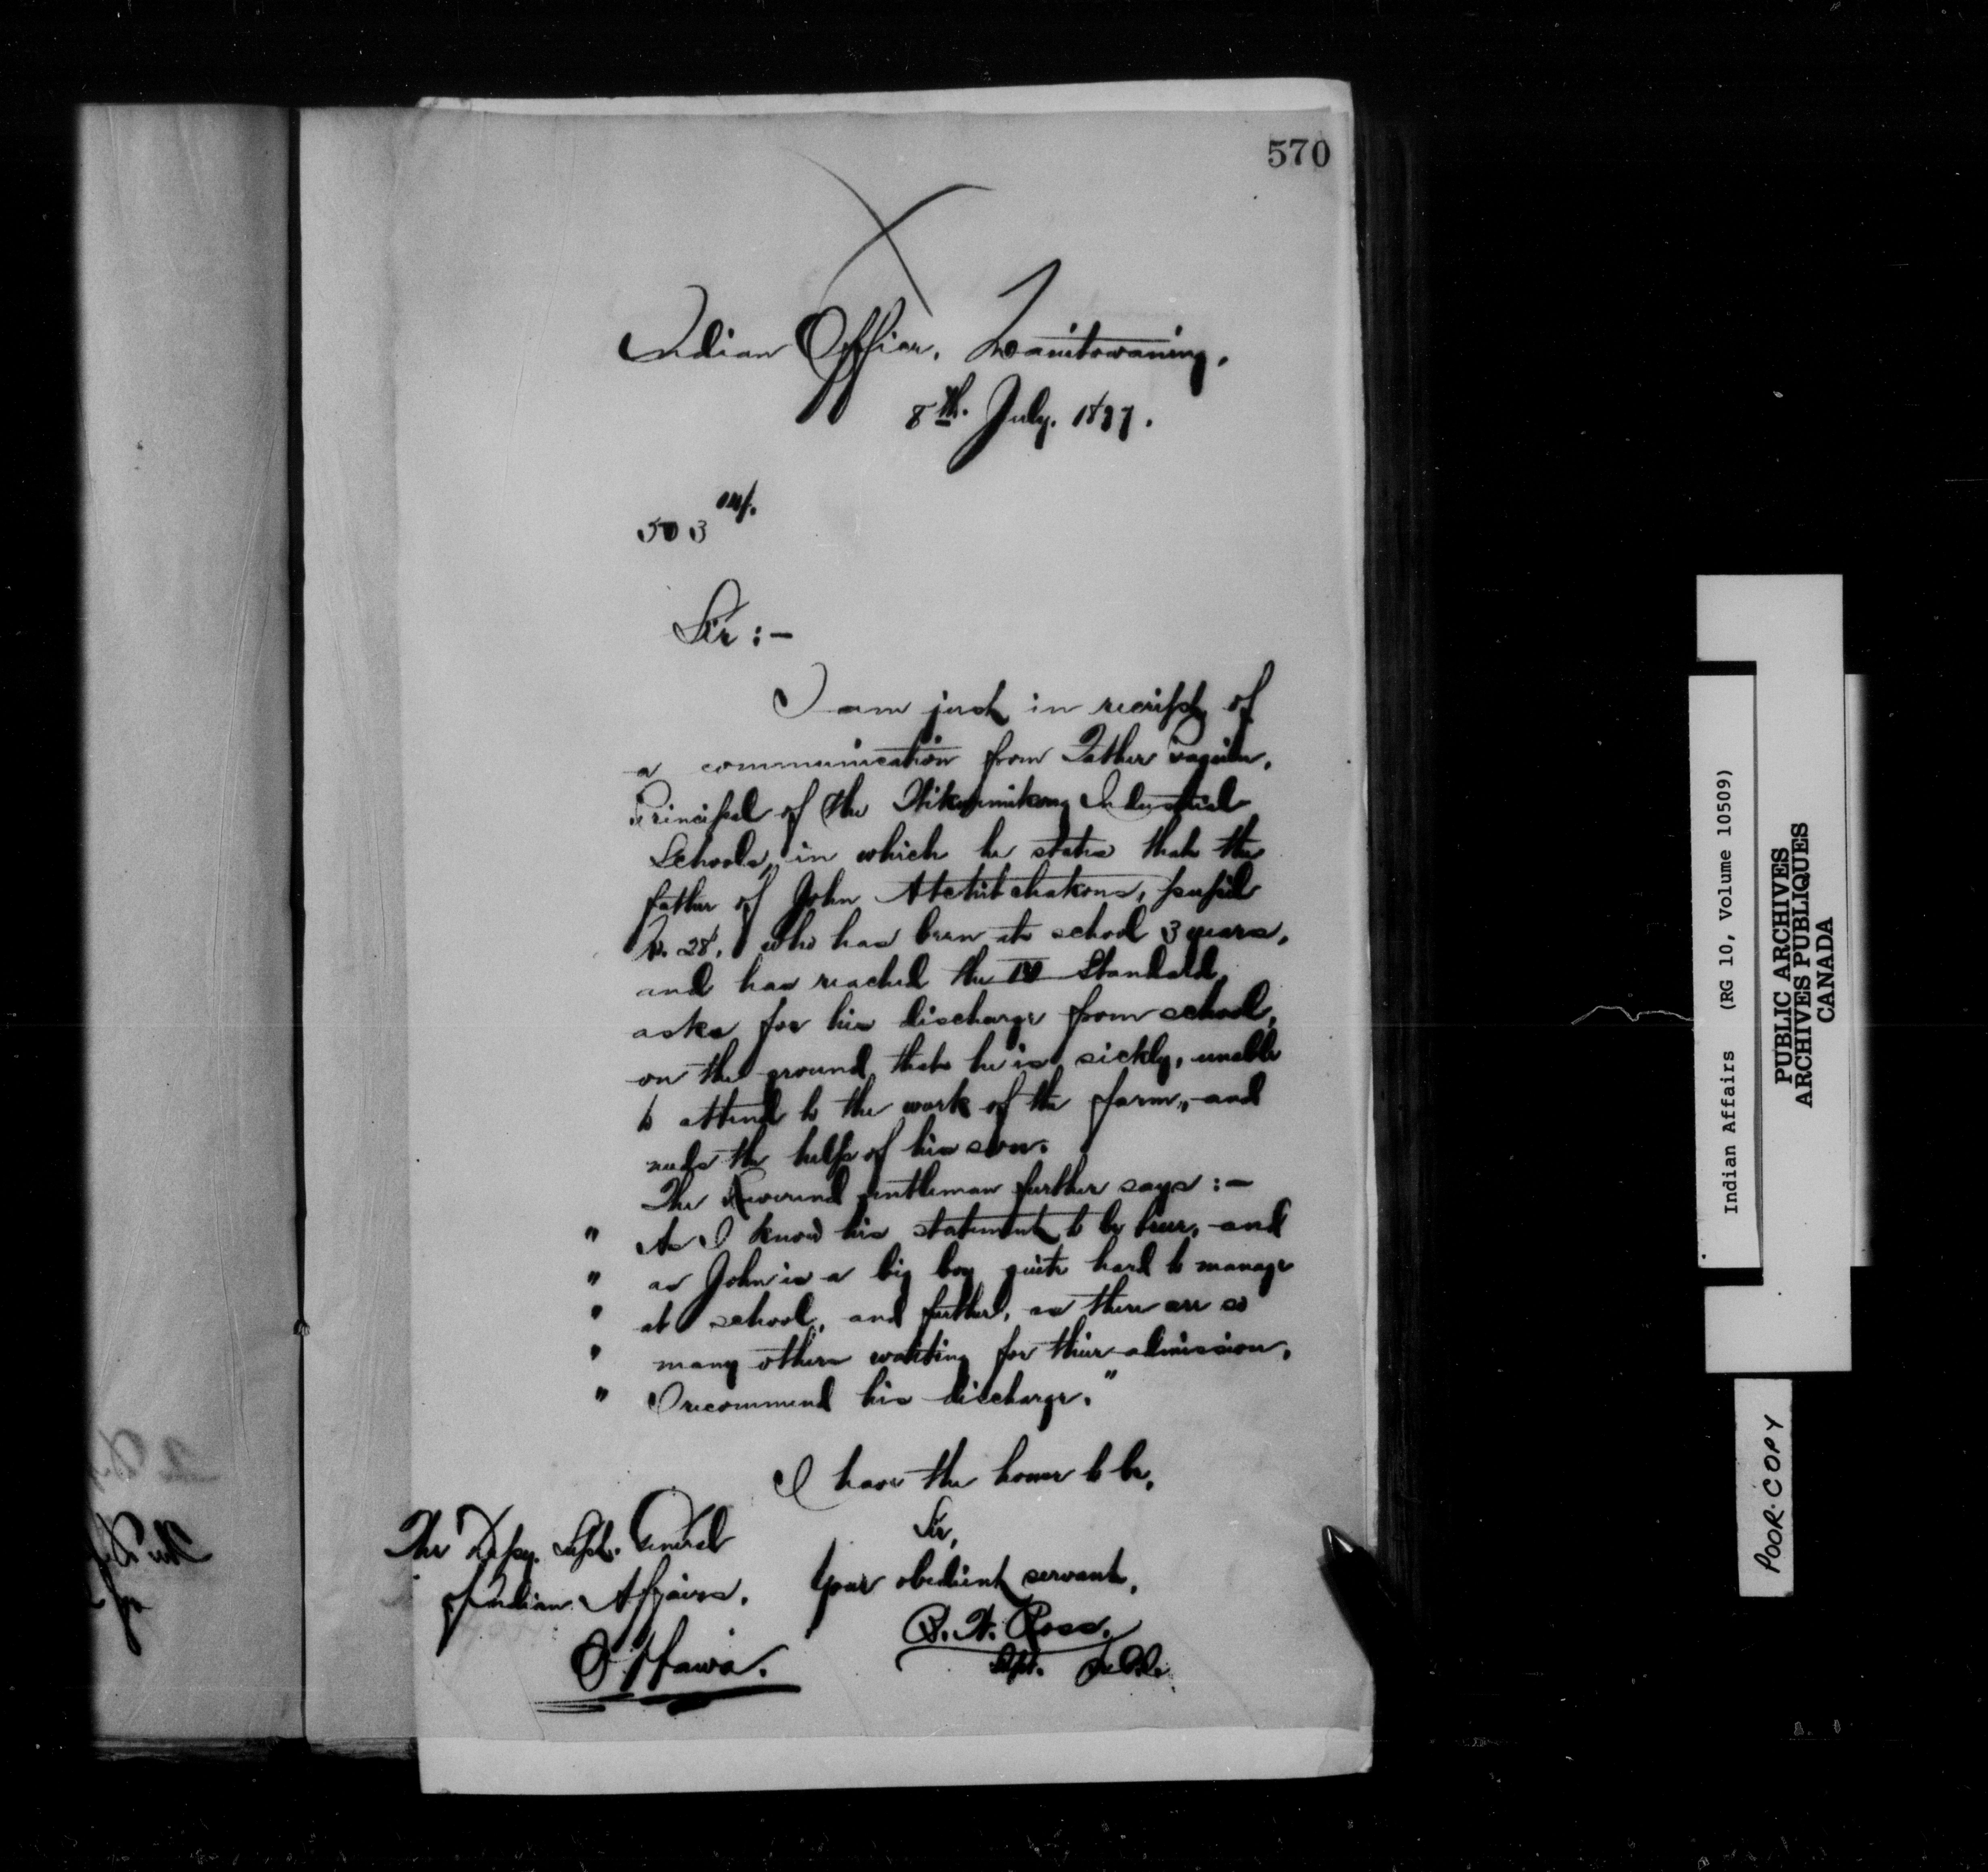 570
Indian Office, Manitowaning.
8th. July. 1897.
503
Sir :-
I am just in receipt of
a communication from Father Paquin,
Principal of the Wikwemikong Industrial
Schools, in which he states that the
father of John Atchitchakons, pupil
No. 28, who has been at school 3 years,
and has reached the Standard,
asks for his discharge from school,
on the ground that he is sickly, unable
to attend to the work of the farm, and
needs the help of his son.
The Reverend gentleman further says :-
" As I know his statement to be true, and
" as John is a big boy quite hard to manage
" at school, and further, as there are so
" many others waiting for their admission,
" I recommend his discharge."
I have the honor to be,
Sir,
Your obedient servant,
B. W. Ross.
Supt.
The Depy. Supt. General
of Indian Affairs.
Ottawa.
Indian Affairs (RG 10, Volume 10509)
PUBLIC ARCHIVES
ARCHIVES PUBLIQUES
CANADA
POOR COPY